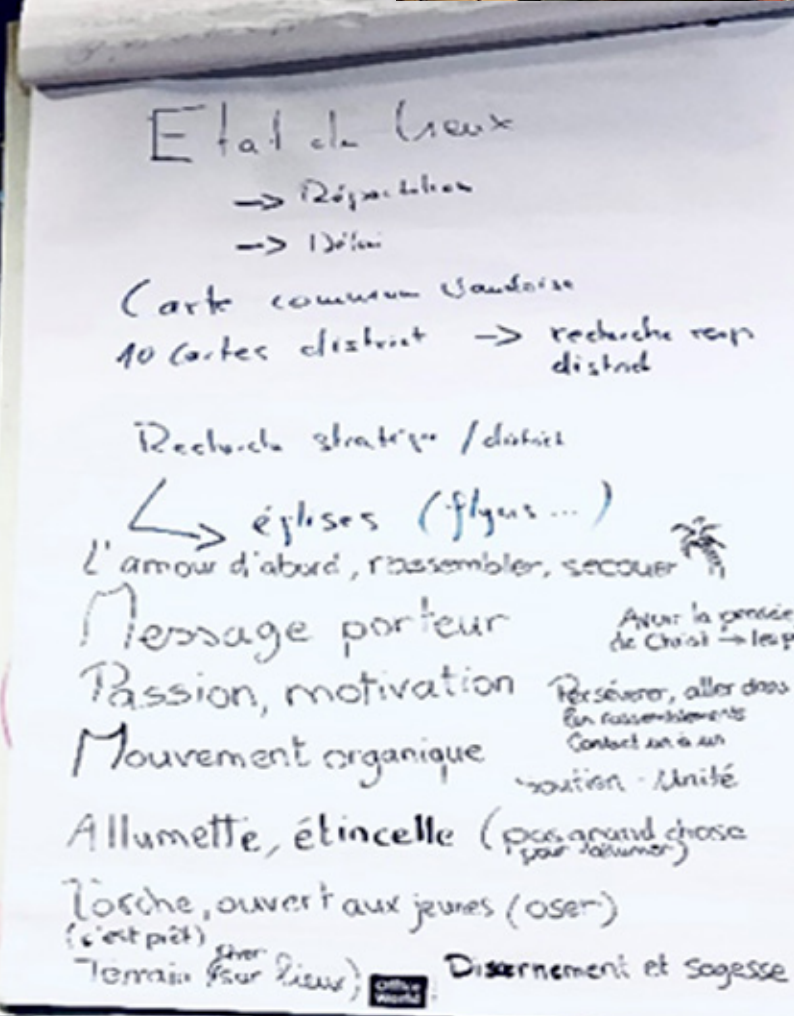 Etat de lieux
-> Répartition
-> Délai
Carte commune Vaudoise
10 Cartes district -> recherche resp
district
Recherche stratégie / district
églises (flyers ...)
L'amour d'abord, rassembler, secouer
Message porteur
Avoir la pensée
de Christ → les p
Passion, motivation
Persévérer, aller dans
les rassemblements
Contact un à un
Mouvement organique
soutien - Unité
Allumette, étincelle (pas grand chose
pour l'allumer)
Torche, ouvert aux jeunes (oser)
(c'est prêt)
Terrain (sur lieux)
Discernement et Sagesse
Office
World